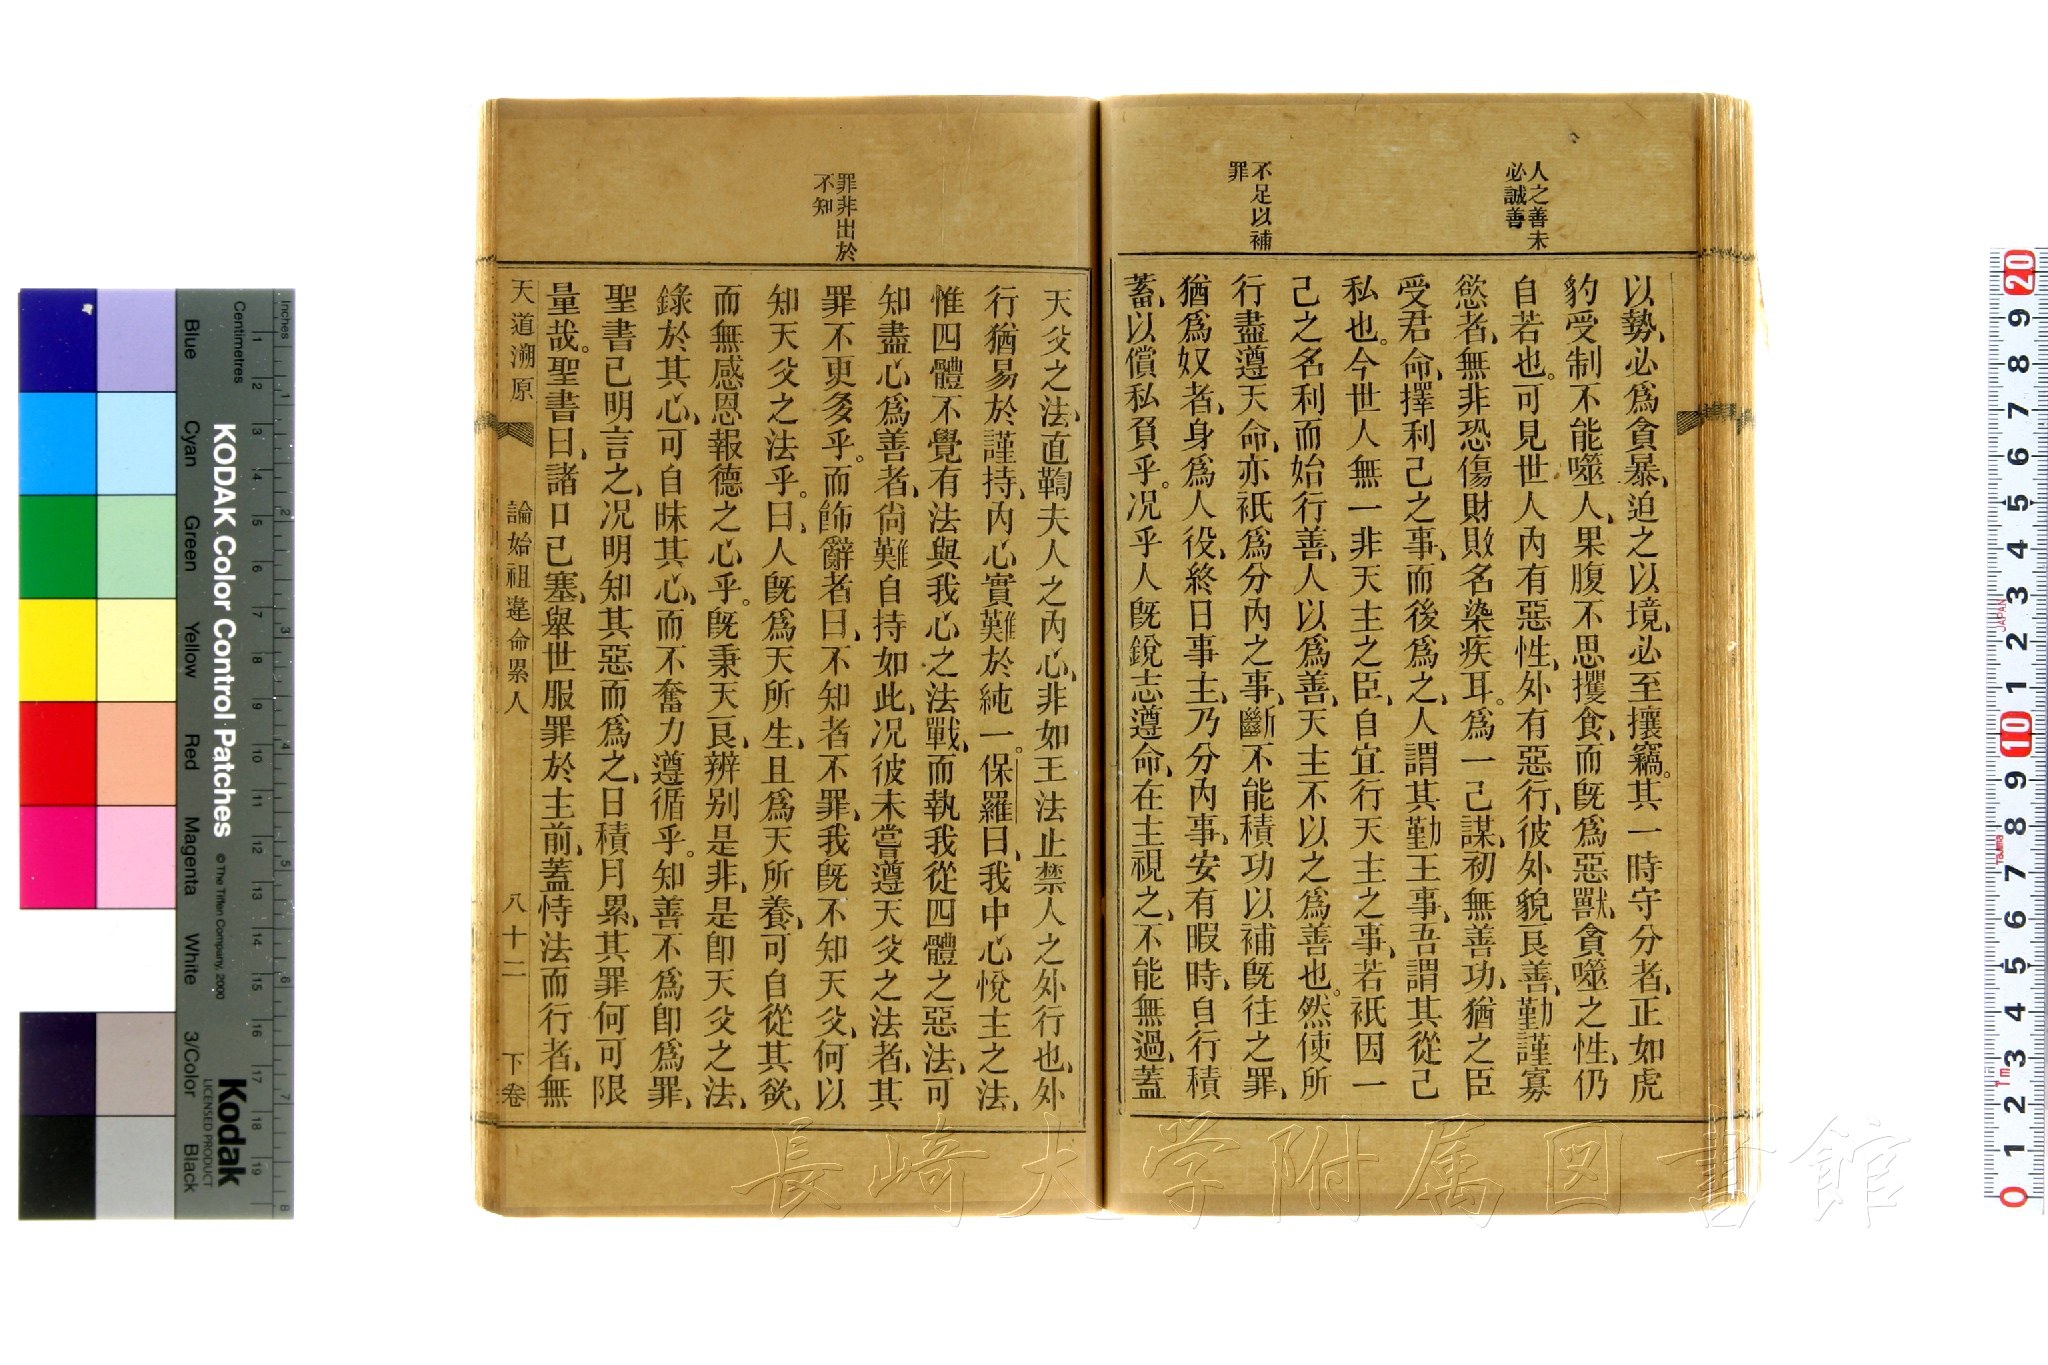 人之善未
必誠善
不足以補
罪
以勢、必爲貪暴、迫之以境、必至攘竊。其一時守分者、正如虎
豹受制不能噬人、果腹不思攫食、而旣爲惡獸、貪噬之性、仍
自若也。可見世人內有惡性、外有惡行、彼外貌良善、勤謹寡
慾者、無非恐傷財敗名染疾耳。爲一己謀、初無善功、猶之臣
受君命、擇利己之事、而後爲之、人謂其勤王事、吾謂其從己
私也。今世人無一非天主之臣、自宜行天主之事、若祇因一
己之名利而始行善、人以爲善、天主不以之爲善也。然使所
行盡遵天命、亦祇爲分內之事、斷不能積功以補旣往之罪、
猶爲奴者、身爲人役、終日事主、乃分內事、安有暇時、自行積
蓄、以償私負乎。况乎人旣銳志遵命、在主視之、不能無過、蓋
罪非出於
不知
天父之法、直鞫夫人之內心、非如王法止禁人之外行也、外
行猶易於謹持、內心實難於純一。保羅曰、我中心悅主之法、
惟四體不覺有法與我心之法戰、而執我從四體之惡法、可
知盡心爲善者、尙難自持如此、况彼未嘗遵天父之法者、其
罪不更多乎。而飾辭者曰、不知者不罪、我旣不知天父、何以
知天父之法乎。曰、人旣爲天所生、且爲天所養、可自從其欲、
而無感恩報德之心乎。旣秉天良、辨别是非、是卽天父之法、
錄於其心、可自昧其心、而不奮力遵循乎。知善不爲卽爲罪、
聖書已明言之、况明知其惡而爲之、日積月累、其罪何可限
量哉。聖書曰、諸口已塞、舉世服罪於主前、蓋恃法而行者、無
天道溯原
論始祖違命累人
八十二
下卷
長崎大学附属図書館
Inches
Centimetres
KODAK Color Control Patches
© The Tiffen Company, 2000
Kodak
LICENSED PRODUCT
Blue
Cyan
Green
Yellow
Red
Magenta
White
3/Color
Black
1 2 3 4 5 6 7 8
1 2 3 4 5 6 7 8 9 10 11 12 13 14 15 16 17 18 19
20 9 8 7 6 5 4 3 2 1 10 9 8 7 6 5 4 3 2 1 0
JAPAN